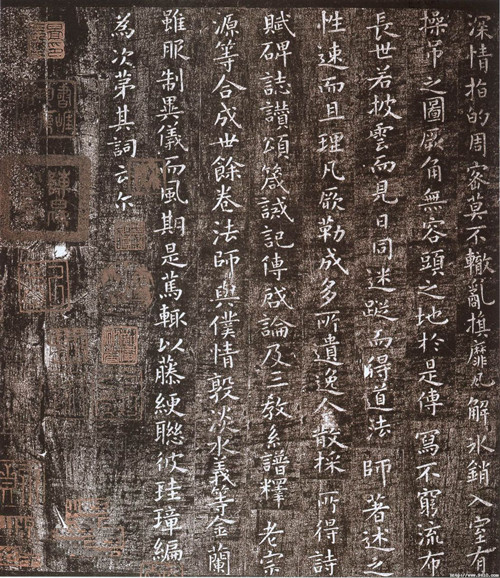 深情指的周密莫不轍亂旗靡瓦解冰銷入室有
操矛之圖厥角無容頭之地於是傳寫不窮流布
長世若披雲而見日同迷蹤而得道法師著述之
性速而且理凡厥勒成多所遺逸今散採所得詩
賦碑誌讚頌箴誡記傳啓論及三教系譜釋老宗
源等合成卅餘卷法師與僕情敦淡水義等金蘭
雖服制異儀而風期是篤輒以藤綆聯彼珪璋編
為次第其詞云尔